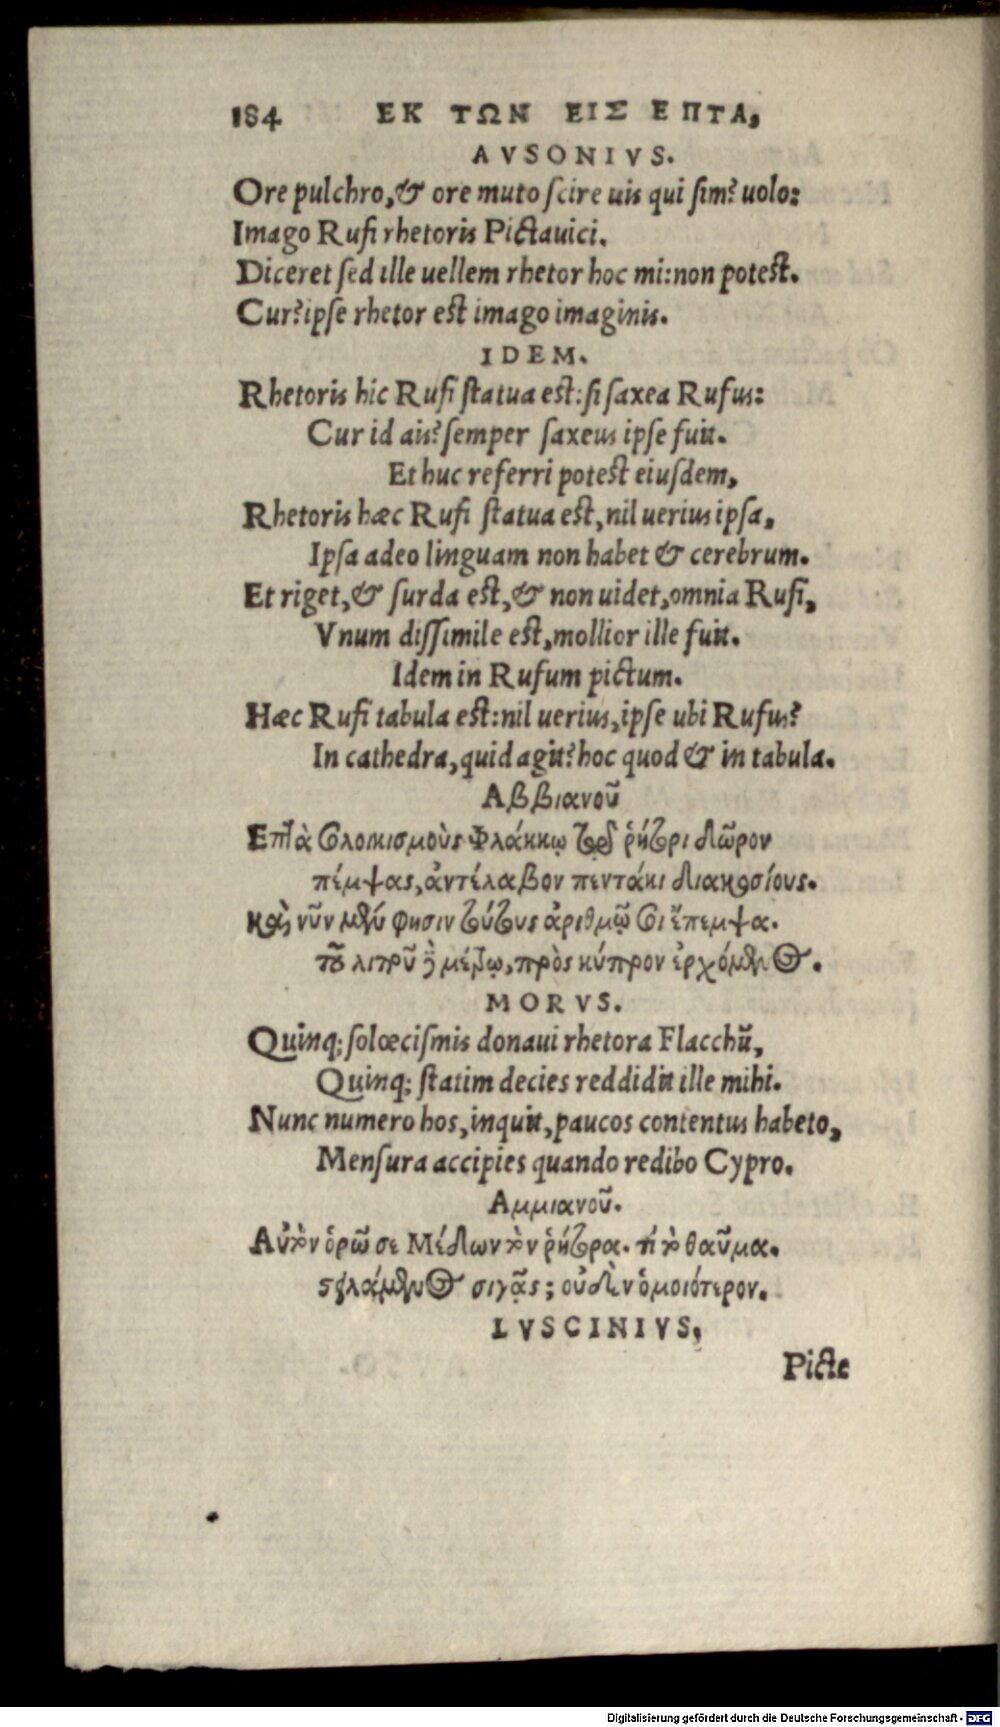 184 ΕΚ ΤΩΝ ΕΙΣ ΕΠΤΑ,
AVSONIVS.
Ore pulchro, & ore muto ſcire uis qui ſim? uolo:
Imago Rufi rhetoris Pictauici.
Diceret ſed ille uellem rhetor hoc mi: non poteſt.
Cur? ipſe rhetor eſt imago imaginis.
IDEM.
Rhetoris hic Rufi ſtatua eſt: ſi ſaxea Rufus:
Cur id ais? ſemper ſaxeus ipſe fuit.
Et huc referri poteſt eiuſdem,
Rhetoris hæc Rufi ſtatua eſt, nil uerius ipſa,
Ipſa adeo linguam non habet & cerebrum.
Et riget, & ſurda eſt, & non uidet, omnia Rufi,
Vnum diſſimile eſt, mollior ille fuit.
Idem in Rufum pictum.
Hæc Rufi tabula eſt: nil uerius, ipſe ubi Rufus?
In cathedra, quid agit? hoc quod & in tabula.
Αββιανοῦ
Επτὰ σολοικισμοὺς Φλάκκῳ τῷ ῥήτορι δῶρον
πέμψας, ἀντέλαβον πεντάκι διακοσίους.
καὶ νῦν μὲν φησιν τούτους ἀριθμῷ σοι ἔπεμψα.
τοῦ λιποῦ ἢ μέτρῳ, πρὸς κύπρον ἐρχόμενος.
MORVS.
Quinq; ſolœciſmis donaui rhetora Flacchū,
Quinq; ſtatim decies reddidit ille mihi.
Nunc numero hos, inquit, paucos contentus habeto,
Menſura accipies quando redibo Cypro.
Αμμιανοῦ.
Αὐτὸν ὁρῶ σε Μέδων τὸν ῥήτορα. τί τὸ θαῦμα.
στελλάμενος σιγᾷς; οὐδὲν ὁμοιότερον.
LVSCINIVS,
Picte
Digitalisierung gefördert durch die Deutsche Forschungsgemeinschaft - DFG